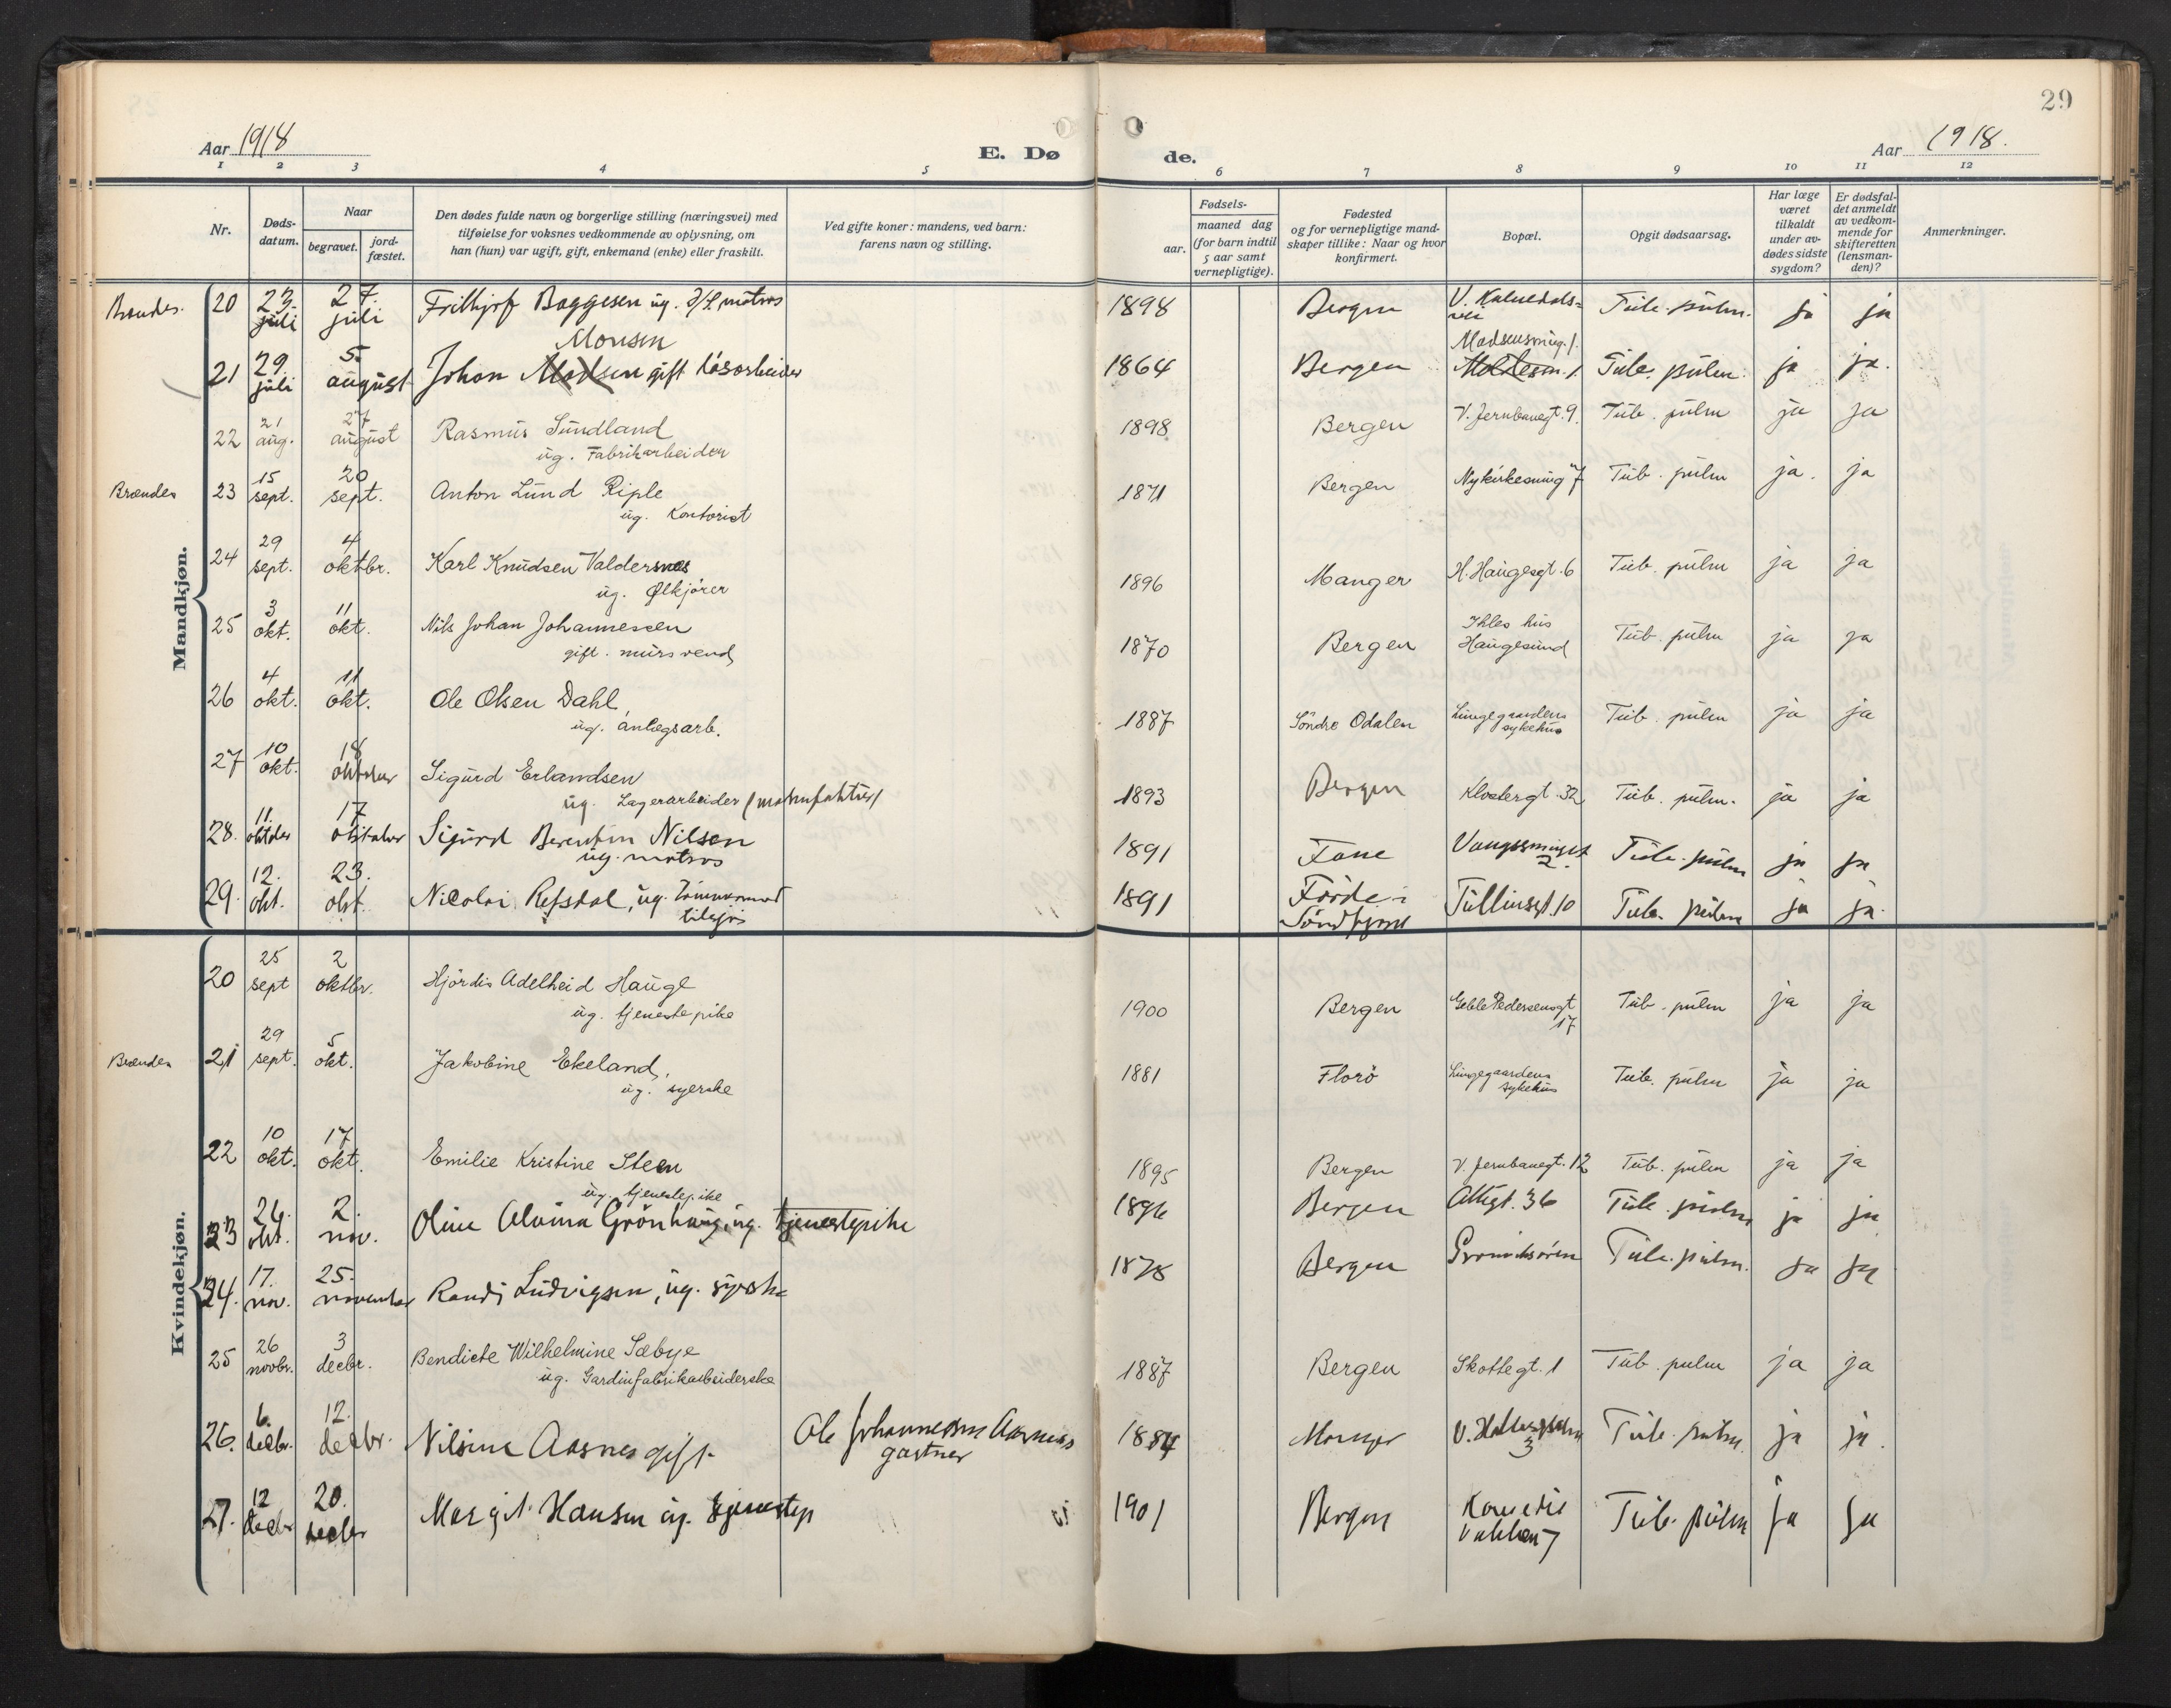 29
Aar 1918
E. Dø
de.
Aar 1918.
1 2 3 4 5 6 7 8 9 10 11 12
Nr.
Døds-
datum.
Naar
begravet.
jord-
fæstet.
Den dødes fulde navn og borgerlige stilling (næringsvei) med
tilføielse for voksnes vedkommende av oplysning, om
han (hun) var ugift, gift, enkemand (enke) eller fraskilt.
Ved gifte koner: mandens, ved barn:
farens navn og stilling.
Fødsels-
aar.
maaned dag
(for barn indtil
5 aar samt
vernepligtige).
Fødested
og for vernepligtige mand-
skaper tillike: Naar og hvor
konfirmert.
Bopæl.
Opgit dødsaarsag.
Har læge
været
tilkaldt
under av-
dødes sidste
sygdom?
Er dødsfal-
det anmeldt
av vedkom-
mende for
skifteretten
(lensman-
den)?
Anmerkninger.
Mandkjøn.
Brændes. 20 23. juli 27. juli Frithjof Baggesen ug. matros 1898 Bergen V. Kalvedals- Tub. pulm. ja ja
vei
Monsen Madsensmug. 1.
21 29. juli 5. august Johan Madsen gift løsarbeider 1864 Bergen Tub. pulm. ja ja.
22 21 aug. 27 august Rasmus Sundland 1898 Bergen V. Jernbanegt. 9. Tub. pulm ja ja
ug. Fabrikarbeider
Brændes 23 15 sept. 20 sept. Anton Lund Riple 1871 Bergen Nykirkesmug 7 Tub. pulm ja. ja
ug. Kontorist
24 29 sept. 4 oktbr. Karl Knudsen Valdersnes 1896 Manger H. Haugesgt. 6 Tub. pulm ja ja
ug. Ølkjører
25 3 okt. 11 okt. Nils Johan Johannessen 1870 Bergen Ihles hus Tub. pulm ja ja
gift. mursvend Haugesund
26 4 okt. 11 okt. Ole Olsen Dahl, 1887 Söndre Odalen Lungegaardens Tub. pulm ja ja
ug. anlegsarb. sykehus
27 10 okt. 18 oktober Sigurd Erlandsen 1893 Bergen Klostergt. 32 Tub. pulm. ja ja
ug. Lagerarbeider (manufaktur)
28. 11. oktober 17 oktober Sigurd Berentin Nilsen 1891 Fane Tub. pulm ja ja
ug. matros 2.
29. 12. okt. 23. okt. Nicolai Refsdal, ug. tømmermand 1891 Førde i Tullinsgt. 10 Tub. pulm ja ja.
tilsjøs Söndfjord
Kvindekjøn.
20 25 sept 2 oktbr. Hjördis Adelheid Hauge 1900 Bergen Geble Pedersensgt Tub. pulm ja ja
ug. tjenestepike 17
Brændes 21 29 sept. 5 okt. Jakobine Ekeland, 1881 Florö Lungegaardens Tub. pulm ja ja
ug. syerske sykehus
22 10 okt. 17 okt. Emilie Kristine Steen 1895 Bergen V. Jernbanegt. 12 Tub. pulm ja ja
ug. tjenestepike
23 okt. 2. nov. Oline Alvina Grönhaug, ug. tjenestepike 1896 Bergen Allegt. 36 Tub. pulm ja ja
24. 17. nov. 25. november Randi Ludvigsen, ug. syerske 1878 Bergen Tub. pulm. ja ja
25 26 novbr. 3 decbr. Bendicte Wilhelmine Sæbye 1887 Bergen Skottegt. 1 Tub. pulm ja ja
ug. Gardinfabrikarbeiderske
26. 6. decbr. 12. decbr. Nilsine Aasnes gift. Ole Johannessen Aasnes 1884 Manger Tub. pulm. ja ja.
gartner 3
27. 12 decbr 20. decbr Margit Hansen ug. tjenestep 1901 Bergen Komedie Tub. pulm ja ja
bakken 7